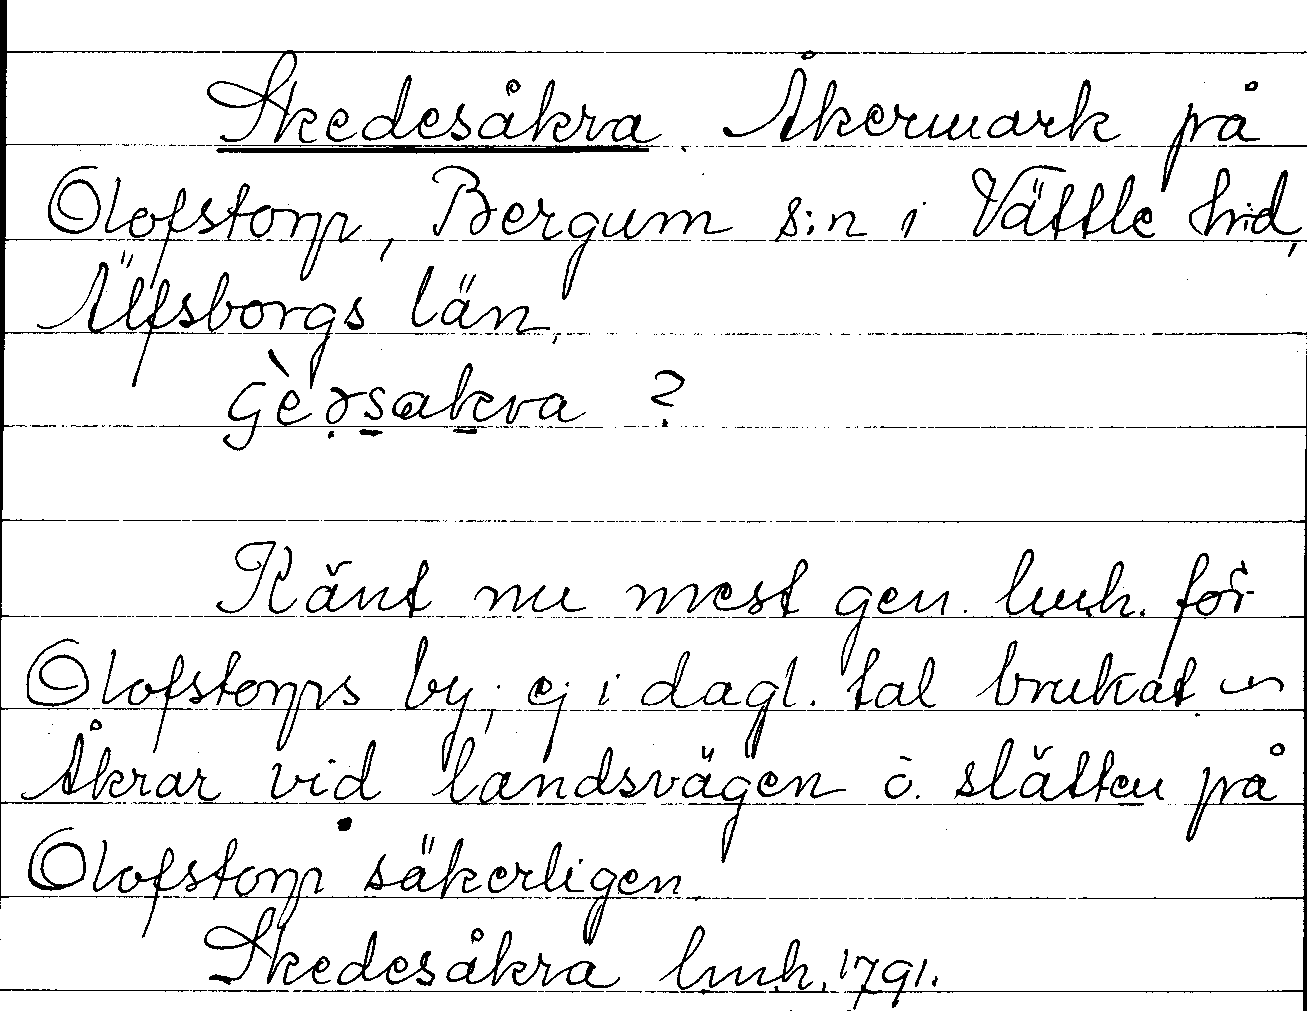 Skedesåkra. Åkermark på
Olofstorp, Bergum s:n i Vättle hrd,
Älfsborgs län.
?
Känt nu mest gen. lm.h. för
Olofstorps by, ej i dagl. tal brukat
Åkrar vid landsvägen ö. slätten på
Olofstorp säkerligen.
Skedesåkra lm.h. 1791.